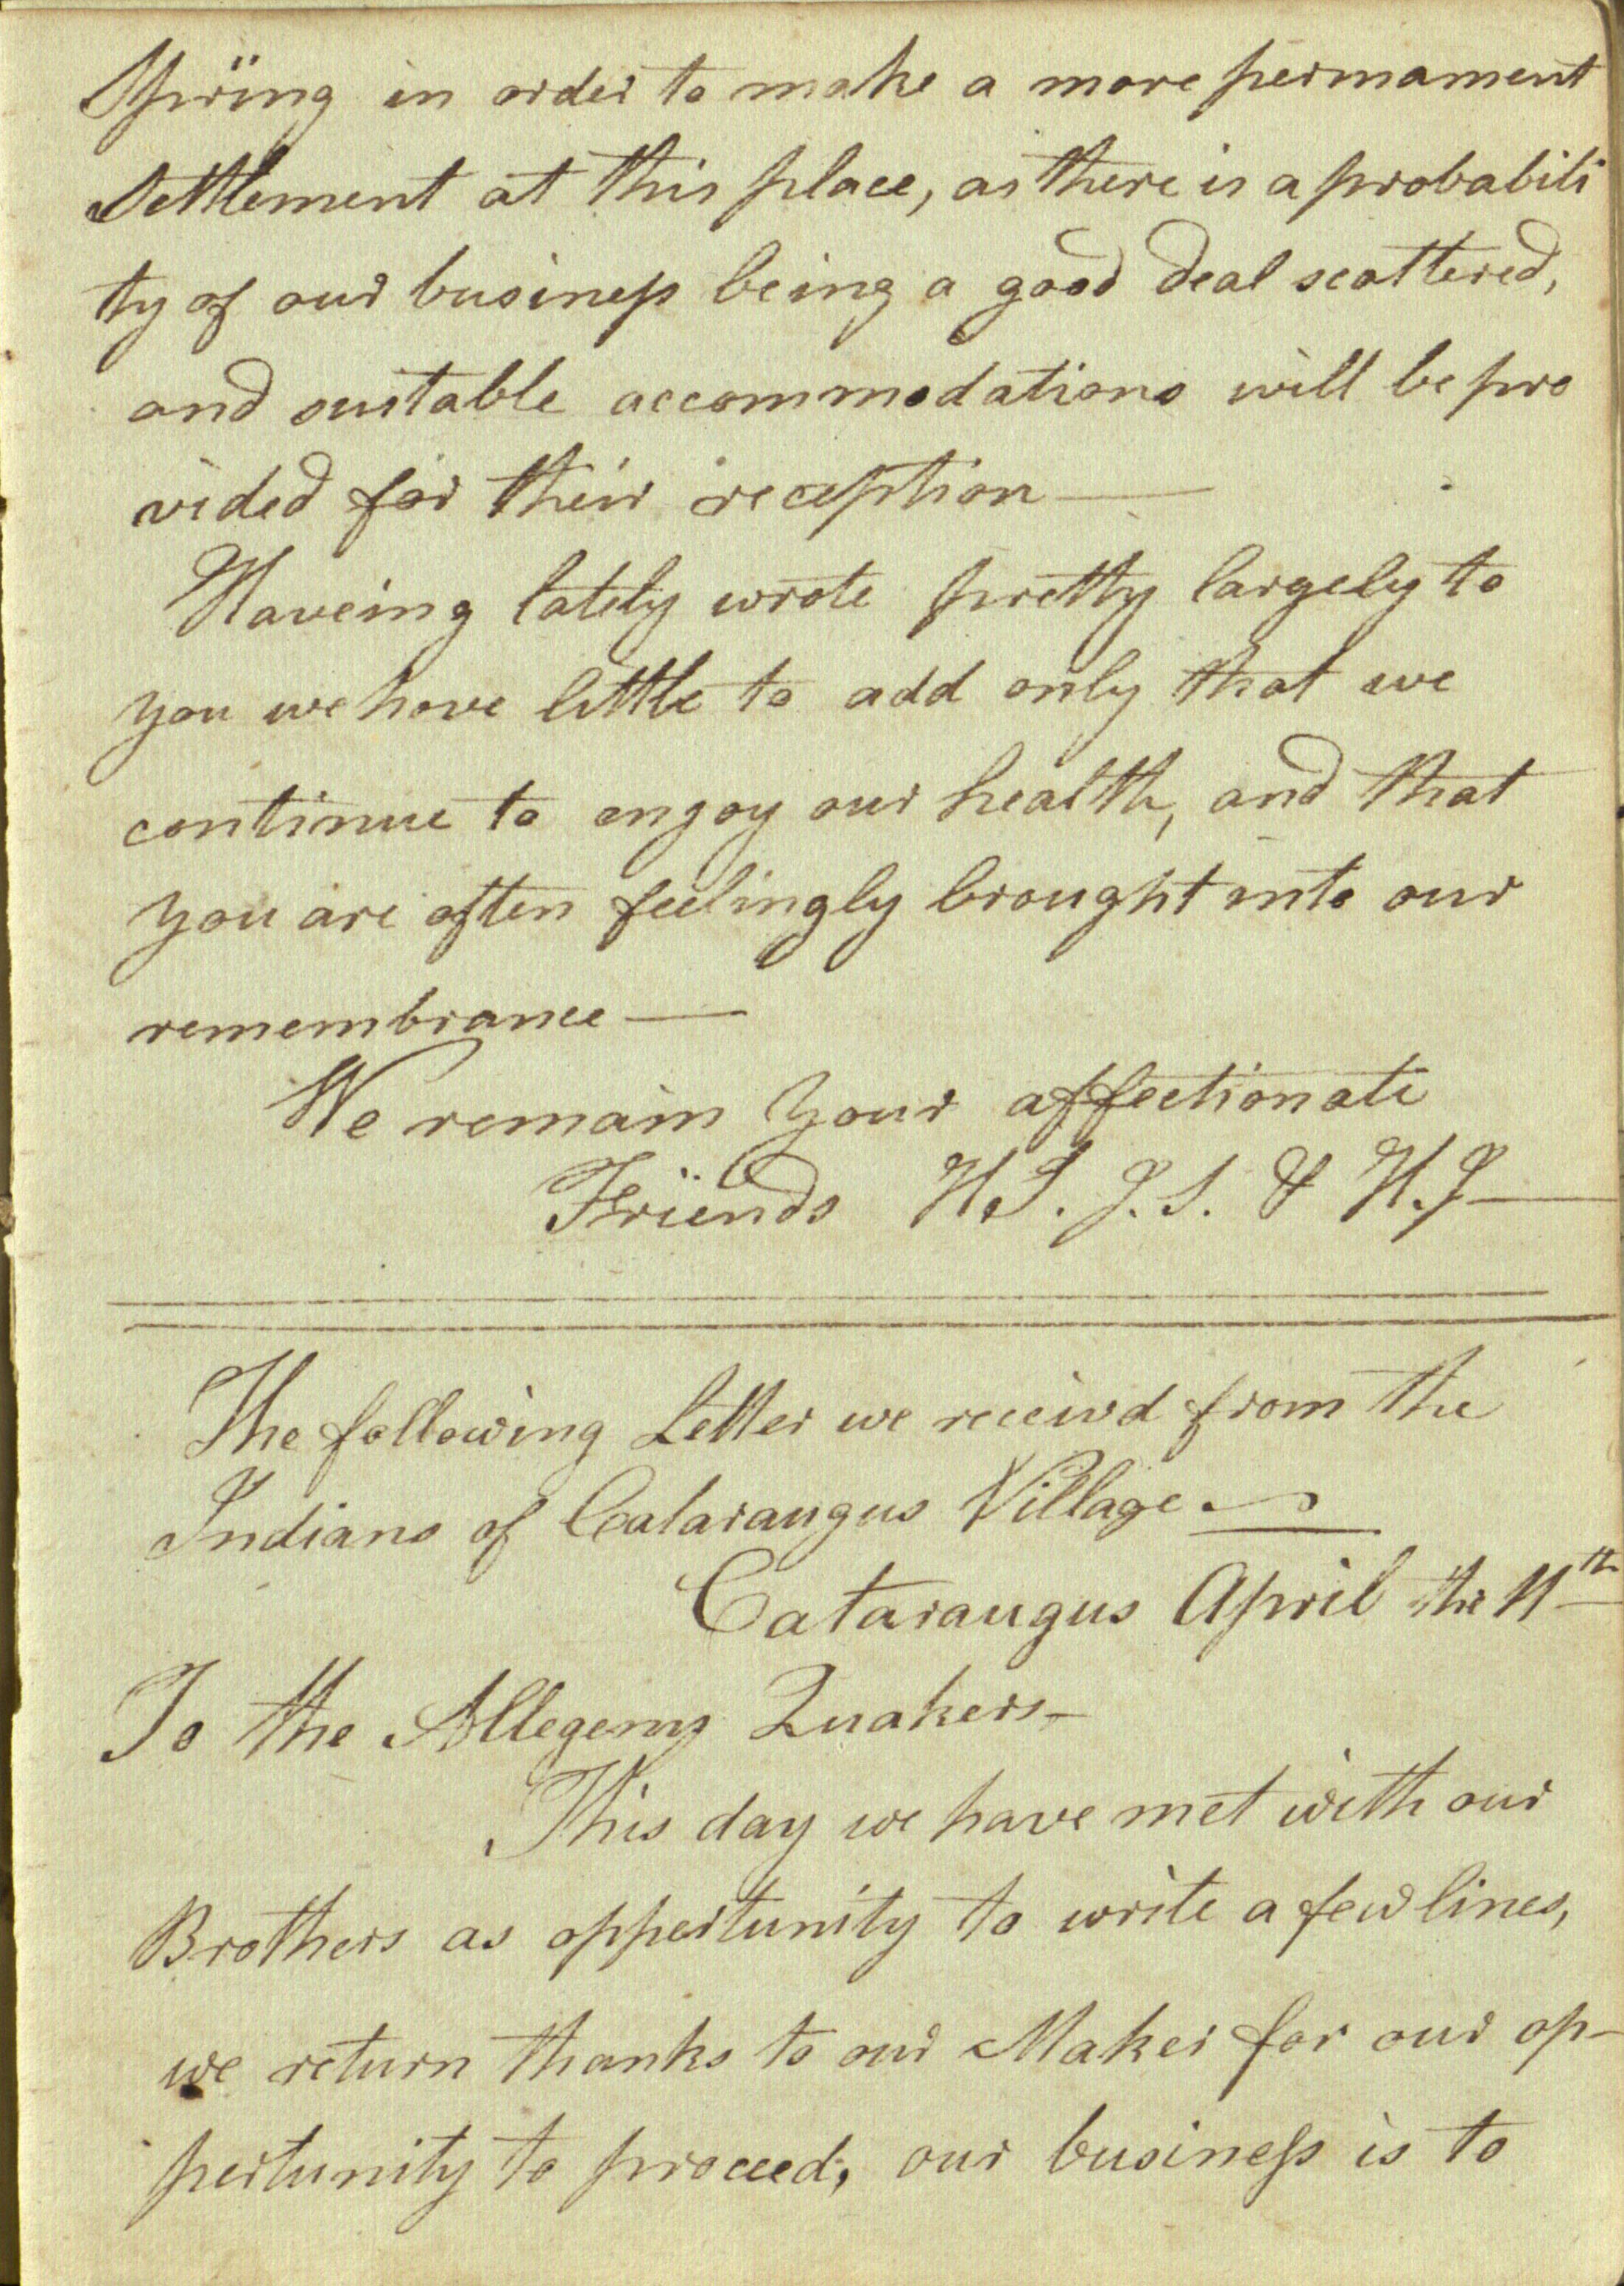 Spring in order to make a more permament
Settlement at this place, as there is a probabili
ty of our business being a good deal scattered,
and suitable accommodations will be pro
vided for their reception —
Haveing lately wrote pretty largely to
you we have little to add only that we
continue to enjoy our health, and that
you are often feelingly brought into our
remembrance —
We remain your affectionate
Friends H.S. J.S. & H.J —
The following Letter we receivd from the
Indians of Cataraugus Village —
Cataraugus April the 11th
To the Allegeny Quakers —
This day we have met with our
Brothers as oppertunity to write a few lines,
we return thanks to our Maker for our op-
pertunity to proceed, our business is to